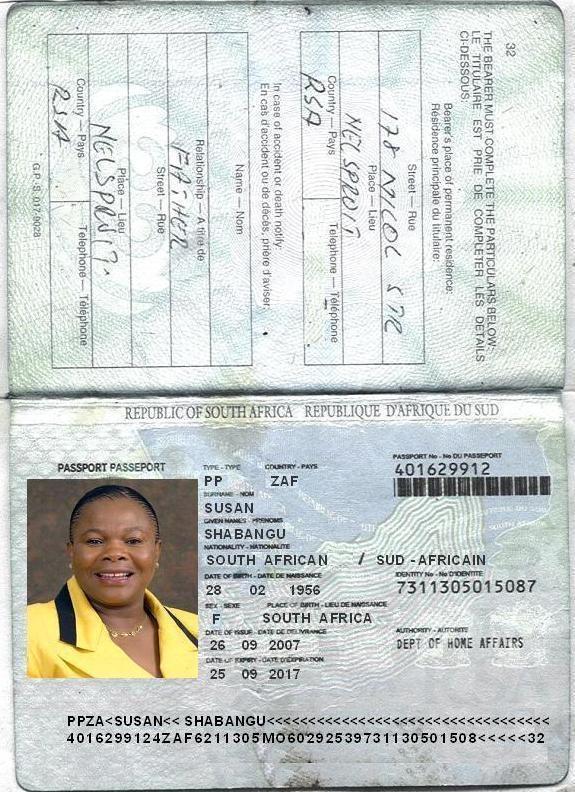 32
THE BEARER MUST COMPLETE THE PARTICULARS BELOW:
LE TITULAIRE EST PRIE DE COMPLETER LES DETAILS
CI-DESSOUS:
Bearer's place of permanent residence:
Résidence principale du titulaire:
Street — Rue
178 NICOL STR
Place — Lieu
NELSPRUIT
Country — Pays Telephone — Téléphone
RSA
In case of accident or death notify:
En cas d'accident ou de décès, prière d'aviser:
Name — Nom
Relationship — A titre de
FATHER
Street — Rue
Place — Lieu
NELSPRUIT.
Country — Pays Telephone — Téléphone
RSA
G.P.-S. 017-9028
REPUBLIC OF SOUTH AFRICA REPUBLIQUE D'AFRIQUE DU SUD
PASSPORT PASSEPORT
TYPE - TYPE COUNTRY - PAYS PASSPORT No - No DU PASSEPORT
PP ZAF 401629912
SURNAME - NOM
SUSAN
GIVEN NAMES - PRENOMS
SHABANGU
NATIONALITY - NATIONALITE
SOUTH AFRICAN / SUD -AFRICAIN
DATE OF BIRTH - DATE DE NAISSANCE IDENTITY No - No D'IDENTITE
28 02 1956 7311305015087
SEX - SEXE PLACE OF BIRTH - LIEU DE NAISSANCE
F SOUTH AFRICA
DATE OF ISSUE - DATE DE DELIVRANCE AUTHORITY - AUTORITE
26 09 2007 DEPT OF HOME AFFAIRS
DATE OF EXPIRY - DATE D'EXPIRATION
25 09 2017
PPZA<SUSAN<< SHABANGU<<<<<<<<<<<<<<<<<<<<<<<<<<<<<<<<
4016299124ZAF6211305MO60292539731130501508<<<<<32